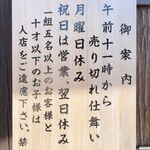 御案内
午前十一時から
売り切れ仕舞い
月曜日休み
祝日は営業、翌日休み
一組五名以上のお客様と
十才以下のお子様は
入店をご遠慮下さい。禁